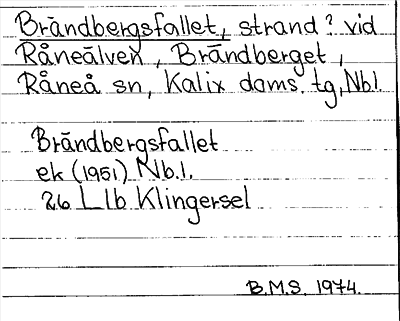 Brändbergsfallet, strand? vid
Råneälven, Brändberget,
Råneå sn, Kalix doms. tg, Nb.l.
Brändbergsfallet
ek (1951) Nb.l.
26 L1b Klingersel
B.M.S. 1974.